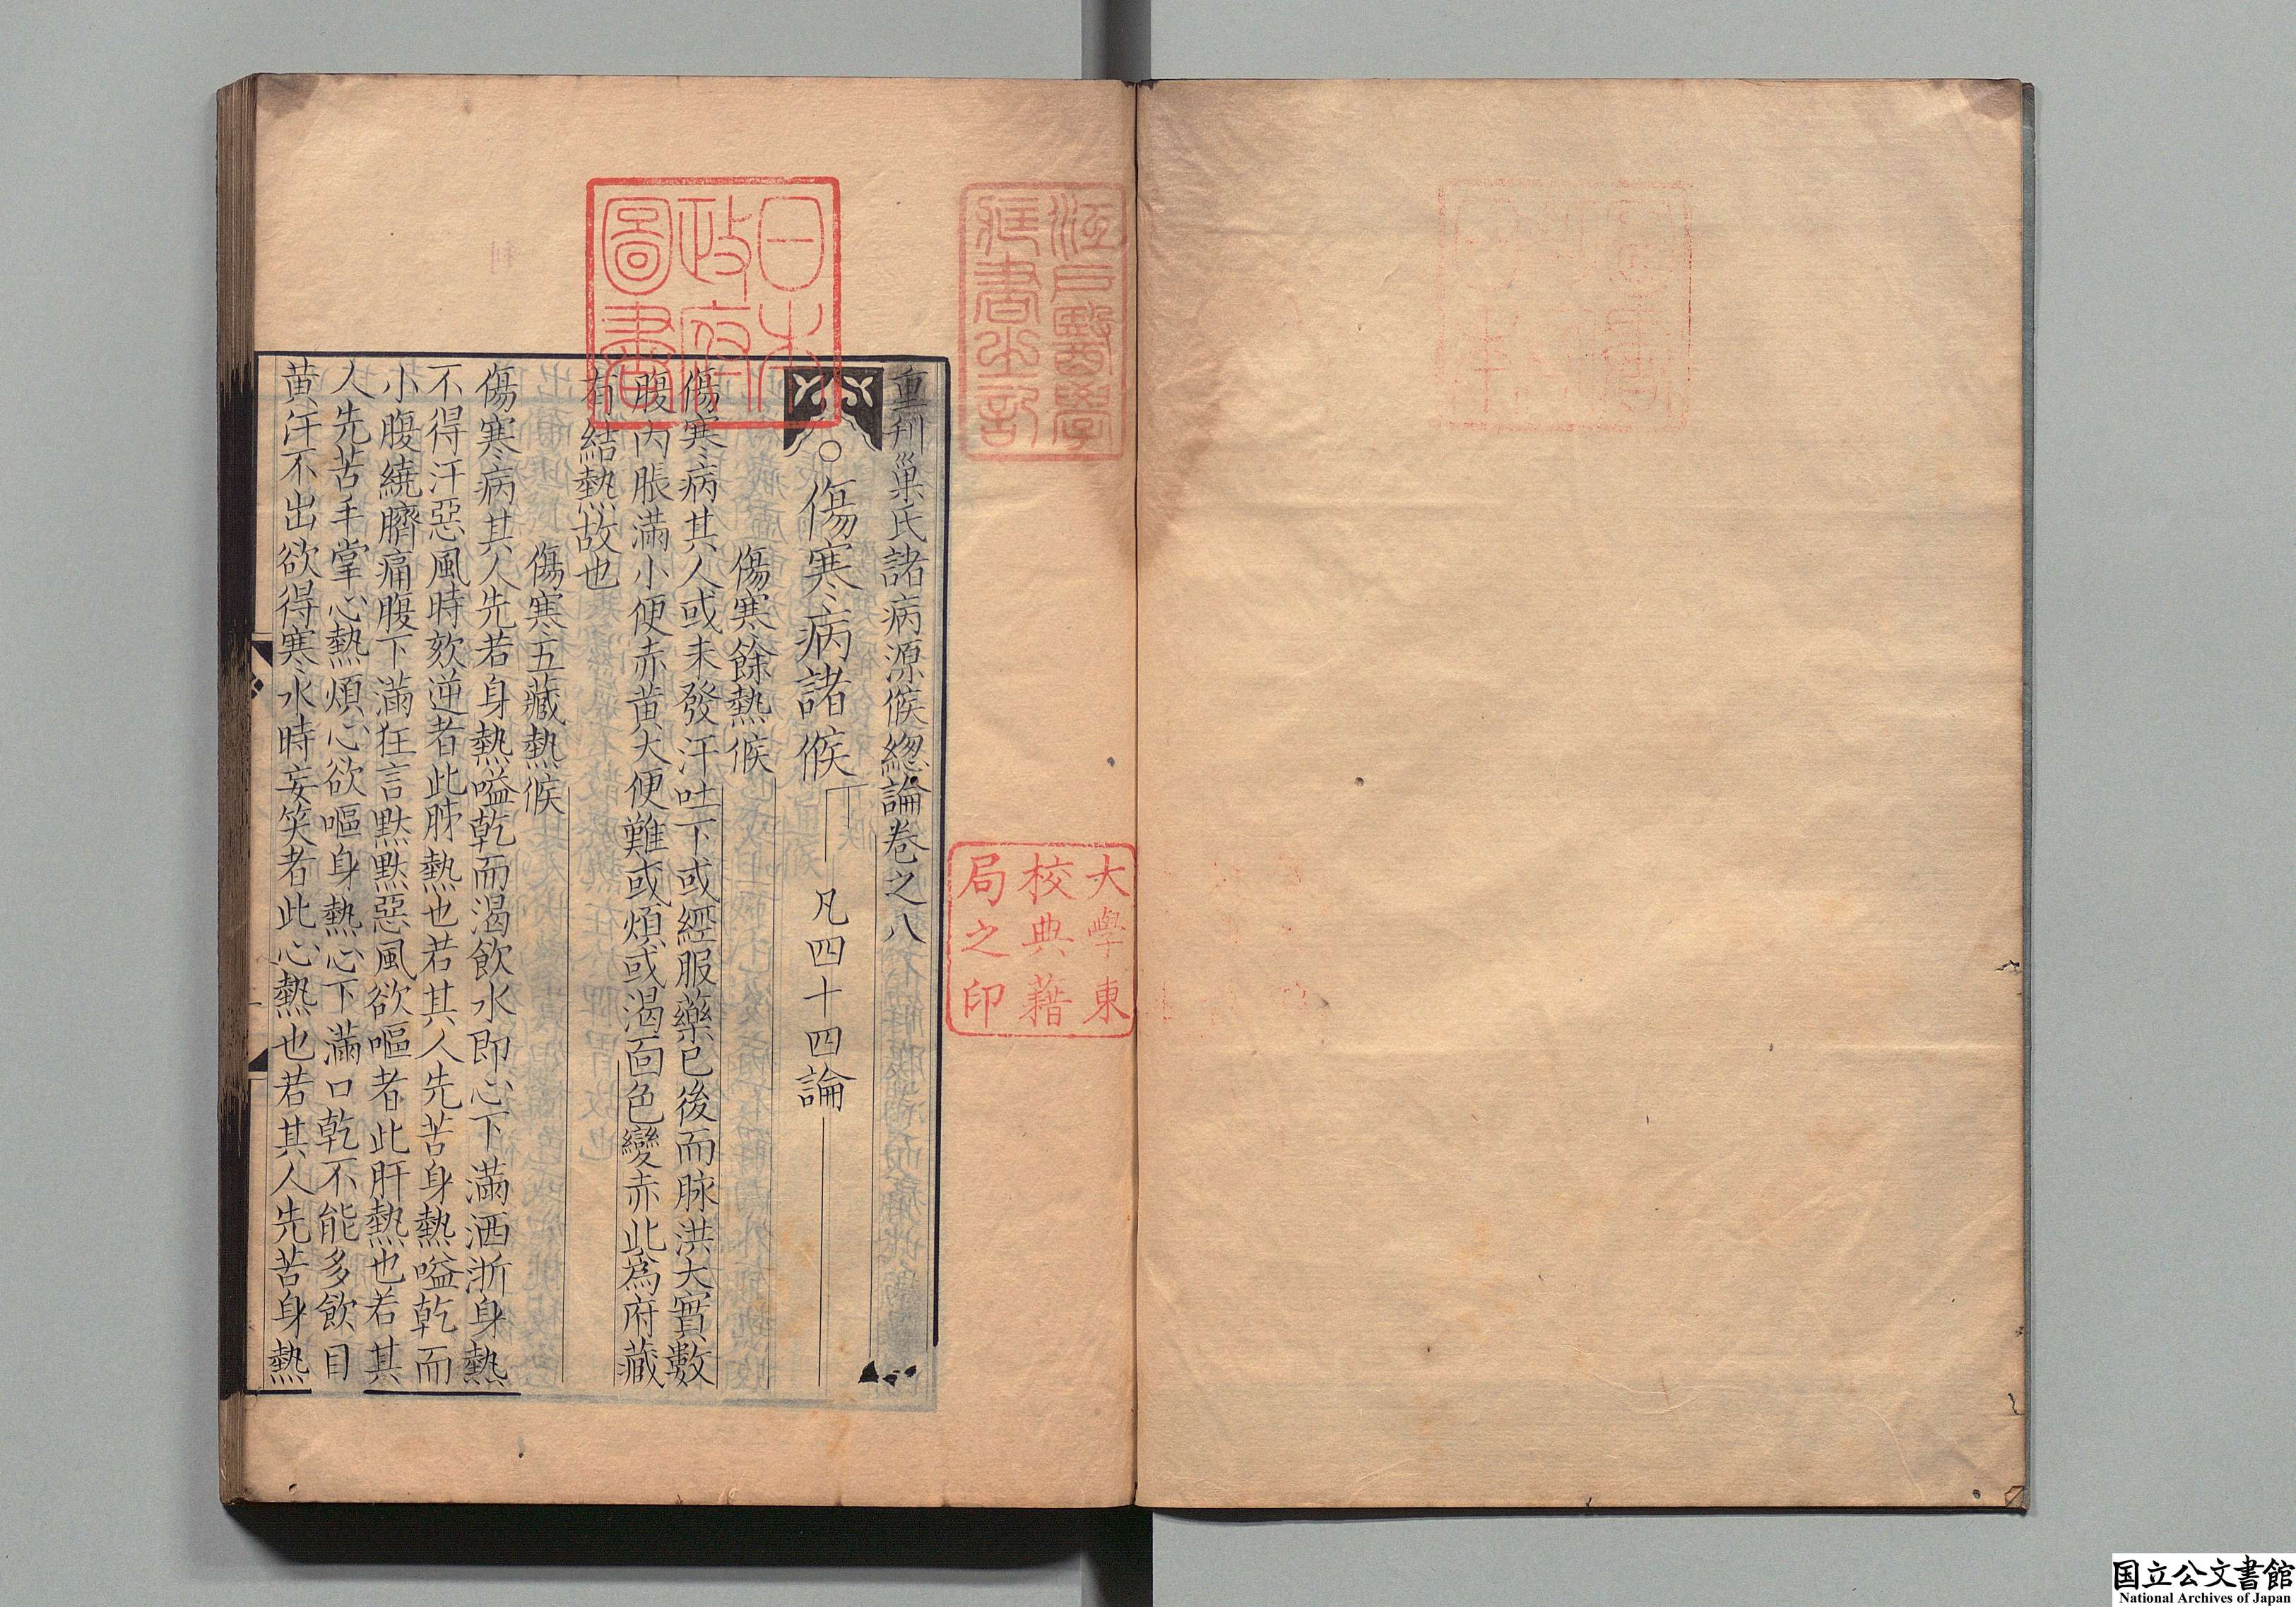 重刊巢氏諸病源候緫論卷之八
○傷寒病諸候下 凡四十四論
傷寒餘熱候
傷寒病其人或未發汗吐下或經服藥已後而脉洪大實數
腹內脹滿小便赤黃大便難或煩或渴面色變赤此爲府藏
有結熱故也
傷寒五藏熱候
傷寒病其人先若身熱嗌乾而渴飲水即心下滿洒淅身熱
不得汗惡風時欬逆者此肺熱也若其人先苦身熱嗌乾而
小腹繞臍痛腹下滿狂言默默惡風欲嘔者此肝熱也若其
人先苦手掌心熱煩心欲嘔身熱心下滿口乾不能多飲目
黃汗不出欲得寒水時妄笑者此心熱也若其人先苦身熱
日本
政府
圖書
江戶醫學
藏書之記
大學東
校典籍
局之印
国立公文書館
National Archives of Japan